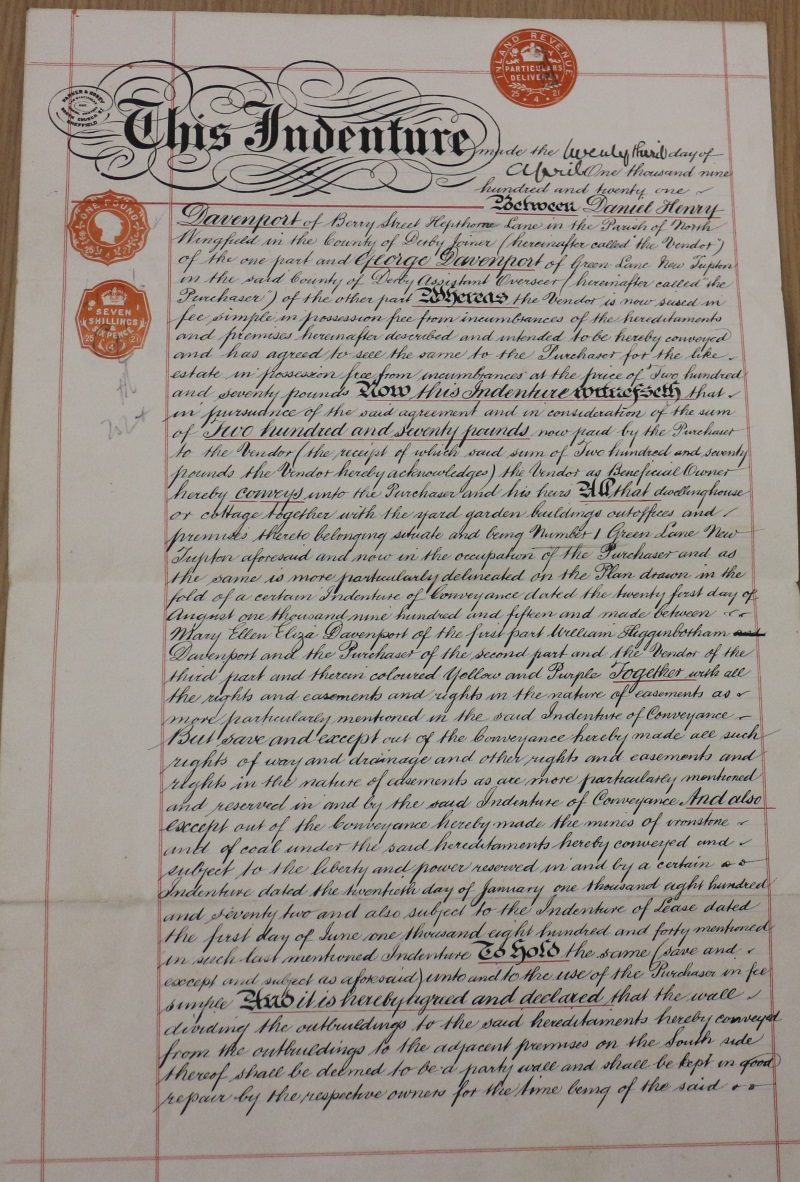 INLAND REVENUE
PARTICULARS
DELIVERED
25 4 21
PARKER & 
SHEFFIELD
This Indenture made the twenty third day of
April One thousand nine
hundred and twenty one
ONE POUND
Between Daniel Henry
Davenport of Berry Street Hepthorne Lane in the Parish of North
Wingfield in the County of Derby Joiner (hereinafter called "the Vendor")
of the one part and George Davenport of Green Lane New Tupton
in the said County of Derby Assistant Overseer (hereinafter called "the
Purchaser") of the other part Whereas the Vendor is now seised in
SEVEN
SHILLINGS
SIX PENCE
25 4 21
fee simple in possession free from incumbrances of the hereditaments
and premises hereinafter described and intended to be hereby conveyed
and has agreed to sell the same to the Purchaser for the like
estate in possession free from incumbrances at the price of Two hundred
and seventy pounds Now this Indenture witnesseth that
in pursuance of the said agreement and in consideration of the sum
of Two hundred and seventy pounds now paid by the Purchaser
to the Vendor (the receipt of which said sum of Two hundred and seventy
pounds the Vendor hereby acknowledges) the Vendor as Beneficial Owner
hereby conveys unto the Purchaser and his heirs All that dwellinghouse
or cottage together with the yard garden buildings outoffices and
premises thereto belonging situate and being Number 1 Green Lane New
Tupton aforesaid and now in the occupation of the Purchaser and as
the same is more particularly delineated on the Plan drawn in the
fold of a certain Indenture of Conveyance dated the twenty first day of
August one thousand nine hundred and fifteen and made between
Mary Ellen Eliza Davenport of the first part William Higgenbotham and
Davenport and the Purchaser of the second part and the Vendor of the
third part and therein coloured Yellow and Purple Together with all
the rights and easements and rights in the nature of easements as
more particularly mentioned in the said Indenture of Conveyance
But save and except out of the Conveyance hereby made all such
rights of way and drainage and other rights and easements and
rights in the nature of easements as are more particularly mentioned
and reserved in and by the said Indenture of Conveyance And also
except out of the Conveyance hereby made the mines of ironstone
and of coal under the said hereditaments hereby conveyed and
subject to the liberty and power reserved in and by a certain
Indenture dated the twentieth day of January one thousand eight hundred
and seventy two and also subject to the Indenture of Lease dated
the first day of June one thousand eight hundred and forty mentioned
in such last mentioned Indenture To Hold the same (save and
except and subject as aforesaid) unto and to the use of the Purchaser in fee
simple And it is hereby agreed and declared that the wall
dividing the outbuildings to the said hereditaments hereby conveyed
from the outbuildings to the adjacent premises on the South side
thereof shall be deemed to be a party wall and shall be kept in good
repair by the respective owners for the time being of the said